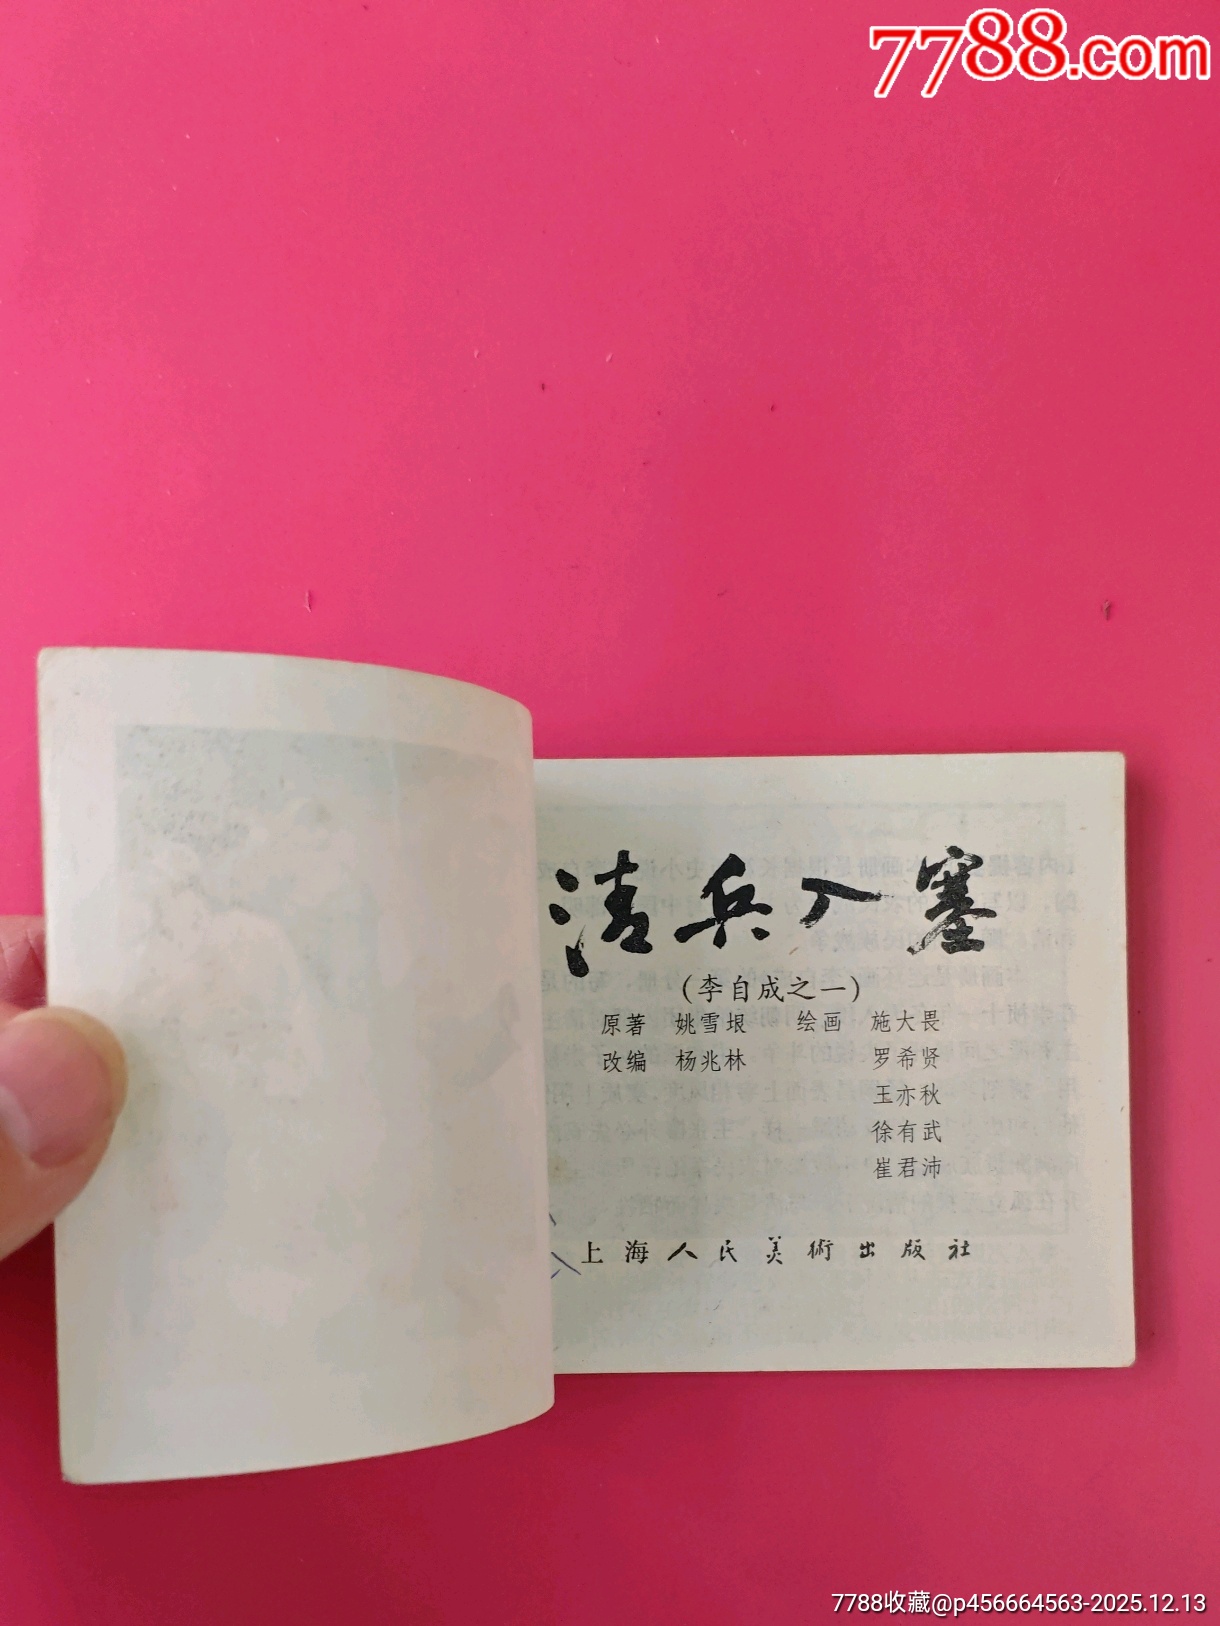 7788.com
清兵入塞
(李自成之一)
原著 姚雪垠 绘画 施大畏
改编 杨兆林 罗希贤
王亦秋
徐有武
崔君沛
上海人民美術出版社
7788收藏@p456664563-2025.12.13